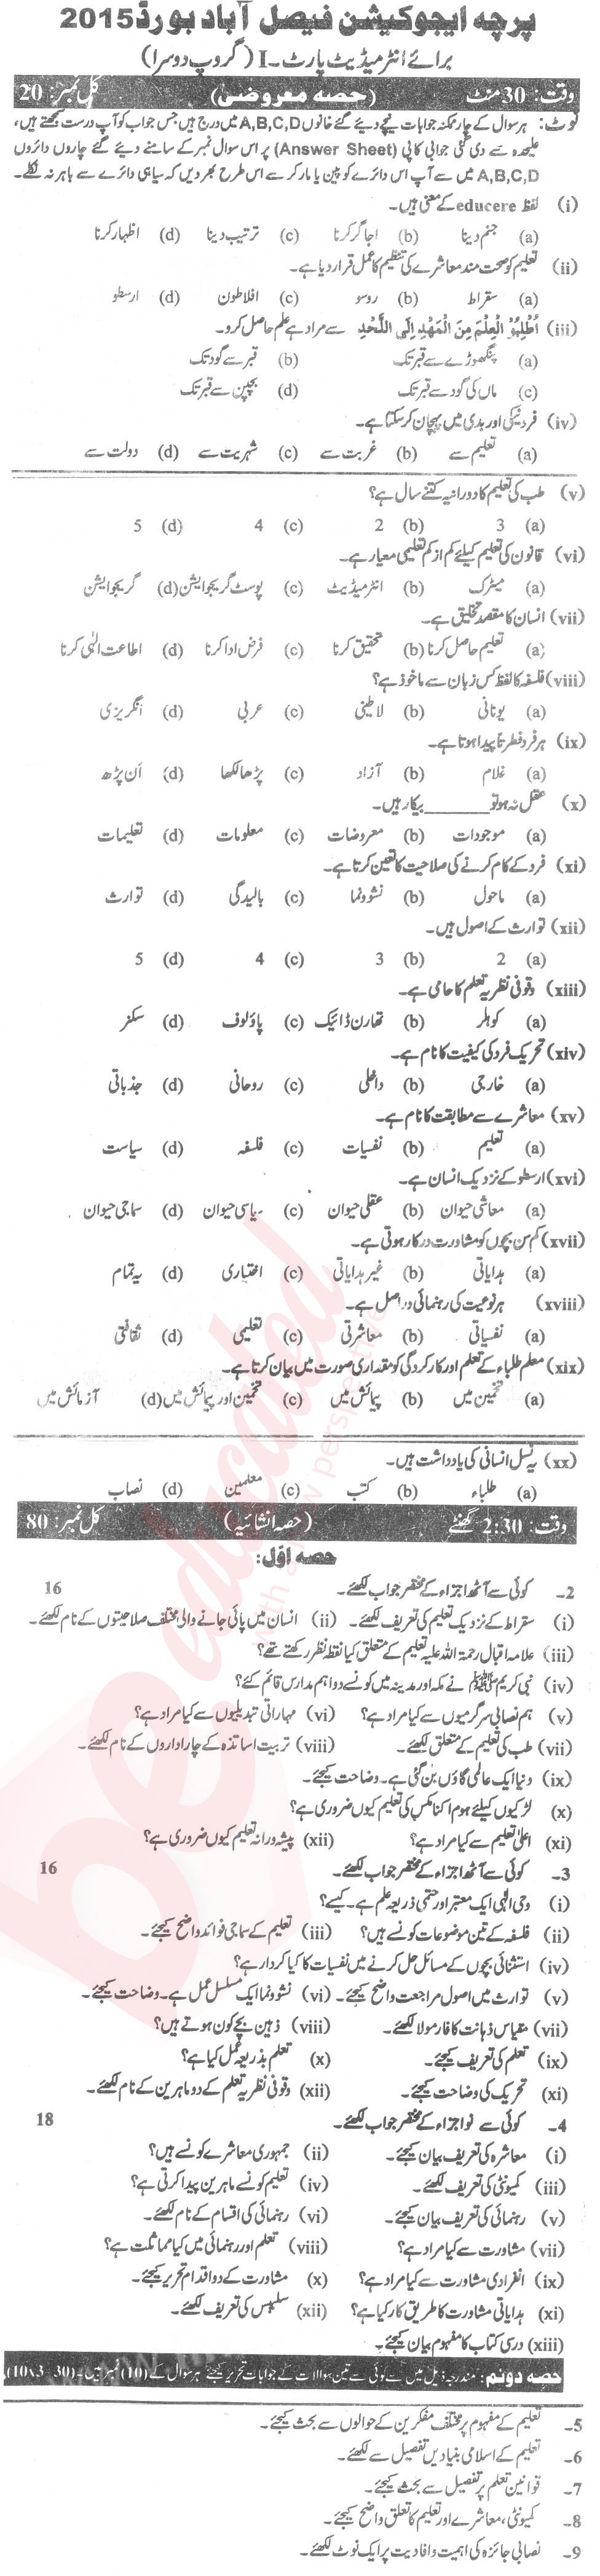 پرچہ ایجوکیشن فیصل آباد بورڈ 2015
برائے انٹرمیڈیٹ پارٹ۔I (گروپ دوسرا)
وقت: 30 منٹ (حصہ معروضی) کل نمبر: 20
نوٹ: ہر سوال کے چار ممکنہ جوابات نیچے دیئے گئے خانوں A,B,C,D میں درج ہیں جس جواب کو آپ درست سمجھتے ہیں،
علیحدہ سے دی گئی جوابی کاپی (Answer Sheet) پر اس سوال نمبر کے سامنے دیئے گئے چاروں دائروں
A,B,C,D میں سے آپ اس دائرے کو پین یا مارکر سے اس طرح بھر دیں کہ سیاہی دائرے سے باہر نہ نکلے۔
(i) لفظ educere کے معنی ہیں۔
(a) جنم دینا (b) اجاگر کرنا (c) ترتیب دینا (d) اظہار کرنا
(ii) تعلیم کو صحت مند معاشرے کی تنظیم کا عمل قرار دیا ہے۔
(a) سقراط (b) روسو (c) افلاطون (d) ارسطو
(iii) اُطْلُبُوْ الْعِلْمَ مِنَ الْمَهْدِ اِلَی اللَّحْدِ سے مراد ہے علم حاصل کرو۔
(a) پنگھوڑے سے قبر تک (b) قبر سے گود تک
(c) ماں کی گود سے قبر تک (d) بچپن سے قبر تک
(iv) فرد نیکی اور بدی میں پہچان کر سکتا ہے۔
(a) تعلیم سے (b) غربت سے (c) شہریت سے (d) دولت سے
(v) طب کی تعلیم کا دورانیہ کتنے سال ہے؟
(a) 3 (b) 2 (c) 4 (d) 5
(vi) قانون کی تعلیم کیلئے کم از کم تعلیمی معیار ہے۔
(a) میٹرک (b) انٹرمیڈیٹ (c) پوسٹ گریجوایشن (d) گریجوایشن
(vii) انسان کا مقصد تخلیق ہے۔
(a) تعلیم حاصل کرنا (b) تحقیق کرنا (c) فرض ادا کرنا (d) اطاعت الٰہی کرنا
(viii) فلسفہ کا لفظ کس زبان سے ماخوذ ہے؟
(a) یونانی (b) لاطینی (c) عربی (d) انگریزی
(ix) ہر فرد فطرتاً پیدا ہوتا ہے۔
(a) غلام (b) آزاد (c) پڑھا لکھا (d) اَن پڑھ
(x) عقل نہ ہو تو ______ بیکار ہیں۔
(a) موجودات (b) معروضات (c) معلومات (d) تعلیمات
(xi) فرد کے کام کرنے کی صلاحیت کا تعین کرتا ہے۔
(a) ماحول (b) نشوونما (c) بالیدگی (d) توارث
(xii) توارث کے اصول ہیں۔
(a) 2 (b) 3 (c) 4 (d) 5
(xiii) وقوفی نظریہ تعلم کا حامی ہے۔
(a) کوہلر (b) تھارن ڈائیک (c) پاؤلوف (d) سکنر
(xiv) تحریک فرد کی کیفیت کا نام ہے۔
(a) خارجی (b) داخلی (c) روحانی (d) جذباتی
(xv) معاشرے سے مطابقت کا نام ہے۔
(a) تعلیم (b) نفسیات (c) فلسفہ (d) سیاست
(xvi) ارسطو کے نزدیک انسان ہے۔
(a) معاشی حیوان (b) عقلی حیوان (c) سیاسی حیوان (d) سماجی حیوان
(xvii) کم سن بچوں کو مشاورت درکار ہوتی ہے۔
(a) ہدایاتی (b) غیر ہدایاتی (c) اختیاری (d) یہ تمام
(xviii) ہر نوعیت کی رہنمائی دراصل ہے۔
(a) نفسیاتی (b) معاشرتی (c) تعلیمی (d) ثقافتی
(xix) معلم طلباء کے تعلم اور کارکردگی کو مقداری صورت میں بیان کرتا ہے۔
(a) تخمین میں (b) پیمائش میں (c) تخمین اور پیمائش میں (d) آزمائش میں
(xx) یہ نسل انسانی کی یادداشت ہیں۔
(a) طلباء (b) کتب (c) معلمین (d) نصاب
وقت: 2:30 گھنٹے (حصہ انشائیہ) کل نمبر: 80
حصہ اوّل:
2۔ کوئی سے آٹھ اجزاء کے مختصر جواب لکھئے۔ 16
(i) سقراط کے نزدیک تعلیم کی تعریف لکھئے۔ (ii) انسان میں پائی جانے والی مختلف صلاحیتوں کے نام لکھئے۔
(iii) علامہ اقبال رحمۃ اللہ علیہ تعلیم کے متعلق کیا نقطہ نظر رکھتے تھے؟
(iv) نبی کریم ﷺ نے مکہ اور مدینہ میں کونسے دو اہم مدارس قائم کئے؟
(v) ہم نصابی سرگرمیوں سے کیا مراد ہے؟ (vi) مہاراتی تبدیلیوں سے کیا مراد ہے؟
(vii) طب کی تعلیم کے متعلق لکھئے۔ (viii) تربیت اساتذہ کے چار اداروں کے نام لکھئے۔
(ix) دنیا ایک عالمی گاؤں بن گئی ہے۔ وضاحت کیجئے۔
(x) لڑکیوں کیلئے ہوم اکنامکس کی تعلیم کیوں ضروری ہے؟
(xi) اعلیٰ تعلیم سے کیا مراد ہے؟ (xii) پیشہ ورانہ تعلیم کیوں ضروری ہے؟
3۔ کوئی سے آٹھ اجزاء کے مختصر جواب لکھئے۔ 16
(i) وحی الٰہی ایک معتبر اور حتمی ذریعہ علم ہے۔ کیسے؟
(ii) فلسفہ کے تین موضوعات کونسے ہیں؟ (iii) تعلیم کے سماجی فوائد واضح کیجئے۔
(iv) استثنائی بچوں کے مسائل حل کرنے میں نفسیات کا کیا کردار ہے؟
(v) توارث میں اصول مراجعت واضح کیجئے۔ (vi) نشوونما ایک مسلسل عمل ہے۔ وضاحت کیجئے۔
(vii) مقیاس ذہانت کا فارمولا لکھئے۔ (viii) ذہین بچے کون ہوتے ہیں؟
(ix) تعلم کی تعریف کیجئے۔ (x) تعلم بذریعہ عمل کیا ہے؟
(xi) تحریک کی وضاحت کیجئے۔ (xii) وقوفی نظریہ تعلم کے دو ماہرین کے نام لکھئے۔
4۔ کوئی سے نو اجزاء کے مختصر جواب لکھئے۔ 18
(i) معاشرہ کی تعریف بیان کیجئے۔ (ii) جمہوری معاشرے کونسے ہیں؟
(iii) کمیونٹی کی تعریف لکھئے۔ (iv) تعلیم کونسے ماہرین پیدا کرتی ہے؟
(v) رہنمائی کی تعریف بیان کیجئے۔ (vi) رہنمائی کی اقسام کے نام لکھئے۔
(vii) مشاورت سے کیا مراد ہے؟ (viii) تعلم اور رہنمائی میں کیا مماثلت ہے؟
(ix) انفرادی مشاورت سے کیا مراد ہے؟ (x) مشاورت کے دو اقدام تحریر کیجئے۔
(xi) ہدایاتی مشاورت کا طریق کار کیا ہے؟ (xii) سلیبس کی تعریف لکھئے۔
(xiii) درسی کتاب کا مفہوم بیان کیجئے۔
حصہ دوئم: مندرجہ ذیل میں سے کوئی سے تین سوالات کے جوابات تحریر کیجئے ہر سوال کے (10) نمبر ہیں۔ (10x3 30)
5۔ تعلیم کے مفہوم پر مختلف مفکرین کے حوالوں سے بحث کیجئے۔
6۔ تعلیم کے اسلامی بنیادیں تفصیل سے لکھئے۔
7۔ قوانین تعلم پر تفصیل سے بحث کیجئے۔
8۔ کمیونٹی، معاشرے اور تعلیم کا تعلق واضح کیجئے۔
9۔ نصابی جائزہ کی اہمیت و افادیت پر ایک نوٹ لکھئے۔
beeducated
with a new perspective